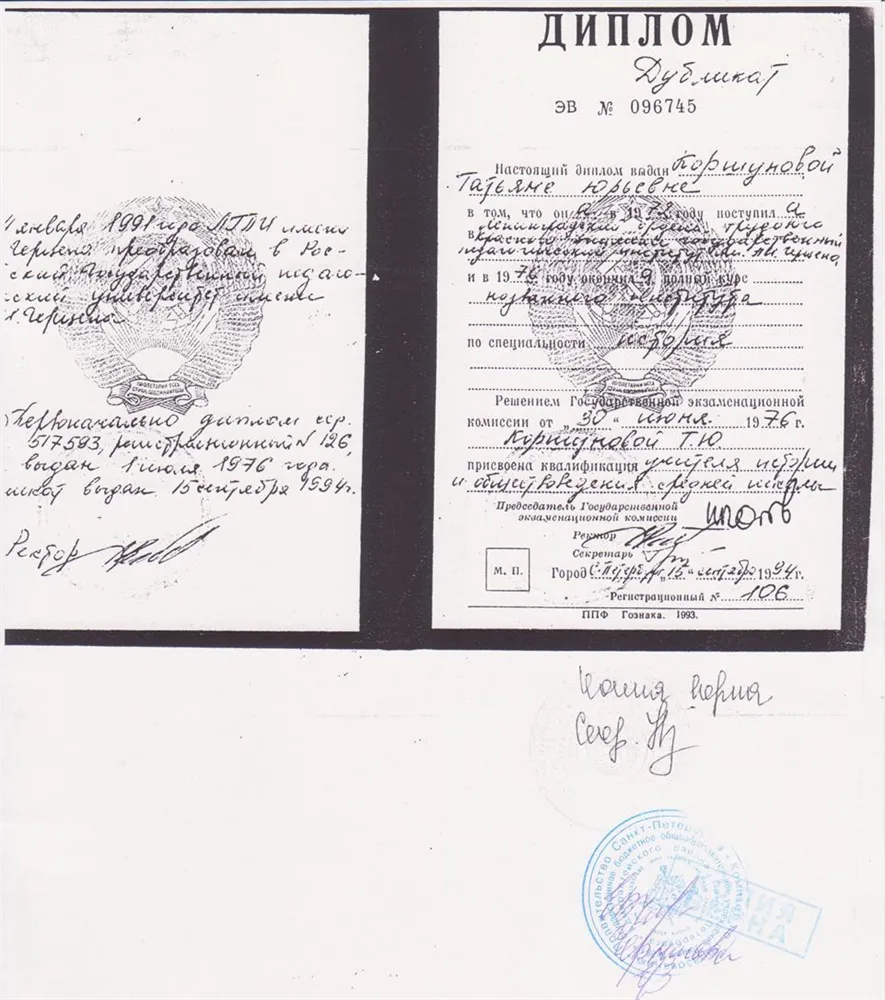 января 1991 года ЛГПИ имени
Герцена преобразован в Рос-
ский Государственный педаго-
ский университет имени
Герцена
Первоначально диплом сер.
517593, регистрационный № 126,
выдан 1 июля 1976 года.
выдан 15 сентября 1994г.
Ректор
ДИПЛОМ
Дубликат
ЭВ № 096745
Настоящий диплом выдан Коршуновой
Татьяне Юрьевне
в том, что он а в 1972 году поступил а
в Ленинградский ордена Трудового
Красного Знамени государственный
педагогический институт им. А.И. Герцена
и в 1976 году окончил а полный курс
названного института
по специальности история
Решением Государственной экзаменационной
комиссии от „30“ июня 1976 г.
Коршуновой Т.Ю
присвоена квалификация учителя истории
и обществоведения средней школы
Председатель Государственной
экзаменационной комиссии
Ректор
Секретарь
М. П.
Город С-Петербург „15“ сентября 1994г.
Регистрационный № 106
ППФ Гознака. 1993.
Копия верна
Секр.